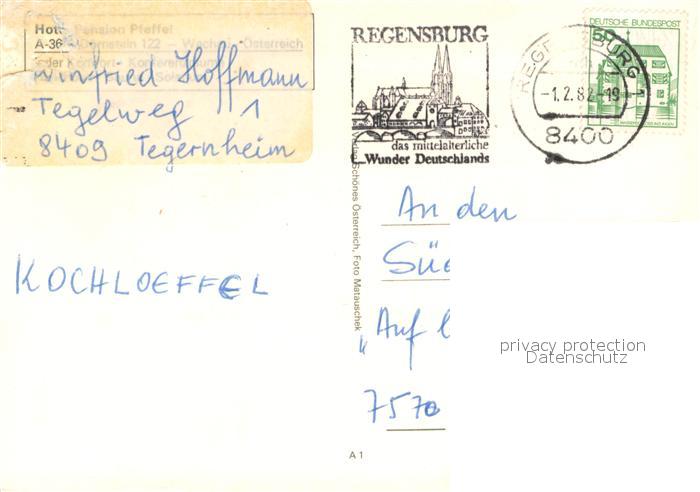 Hotel Pension Pfeffel
A-36 Dürnstein 122 - Wachau, Österreich
Winfried Hoffmann
Tegelweg 1
8409 Tegernheim
KOCHLOEFFEL
REGENSBURG
das mittelalterliche
Wunder Deutschlands
REGENSBURG
-1.2.82-19
8400
DEUTSCHE BUNDESPOST
50
Schönes Österreich, Foto Matauschek
An den
Sü
"Auf
7570
privacy protection
Datenschutz
A 1